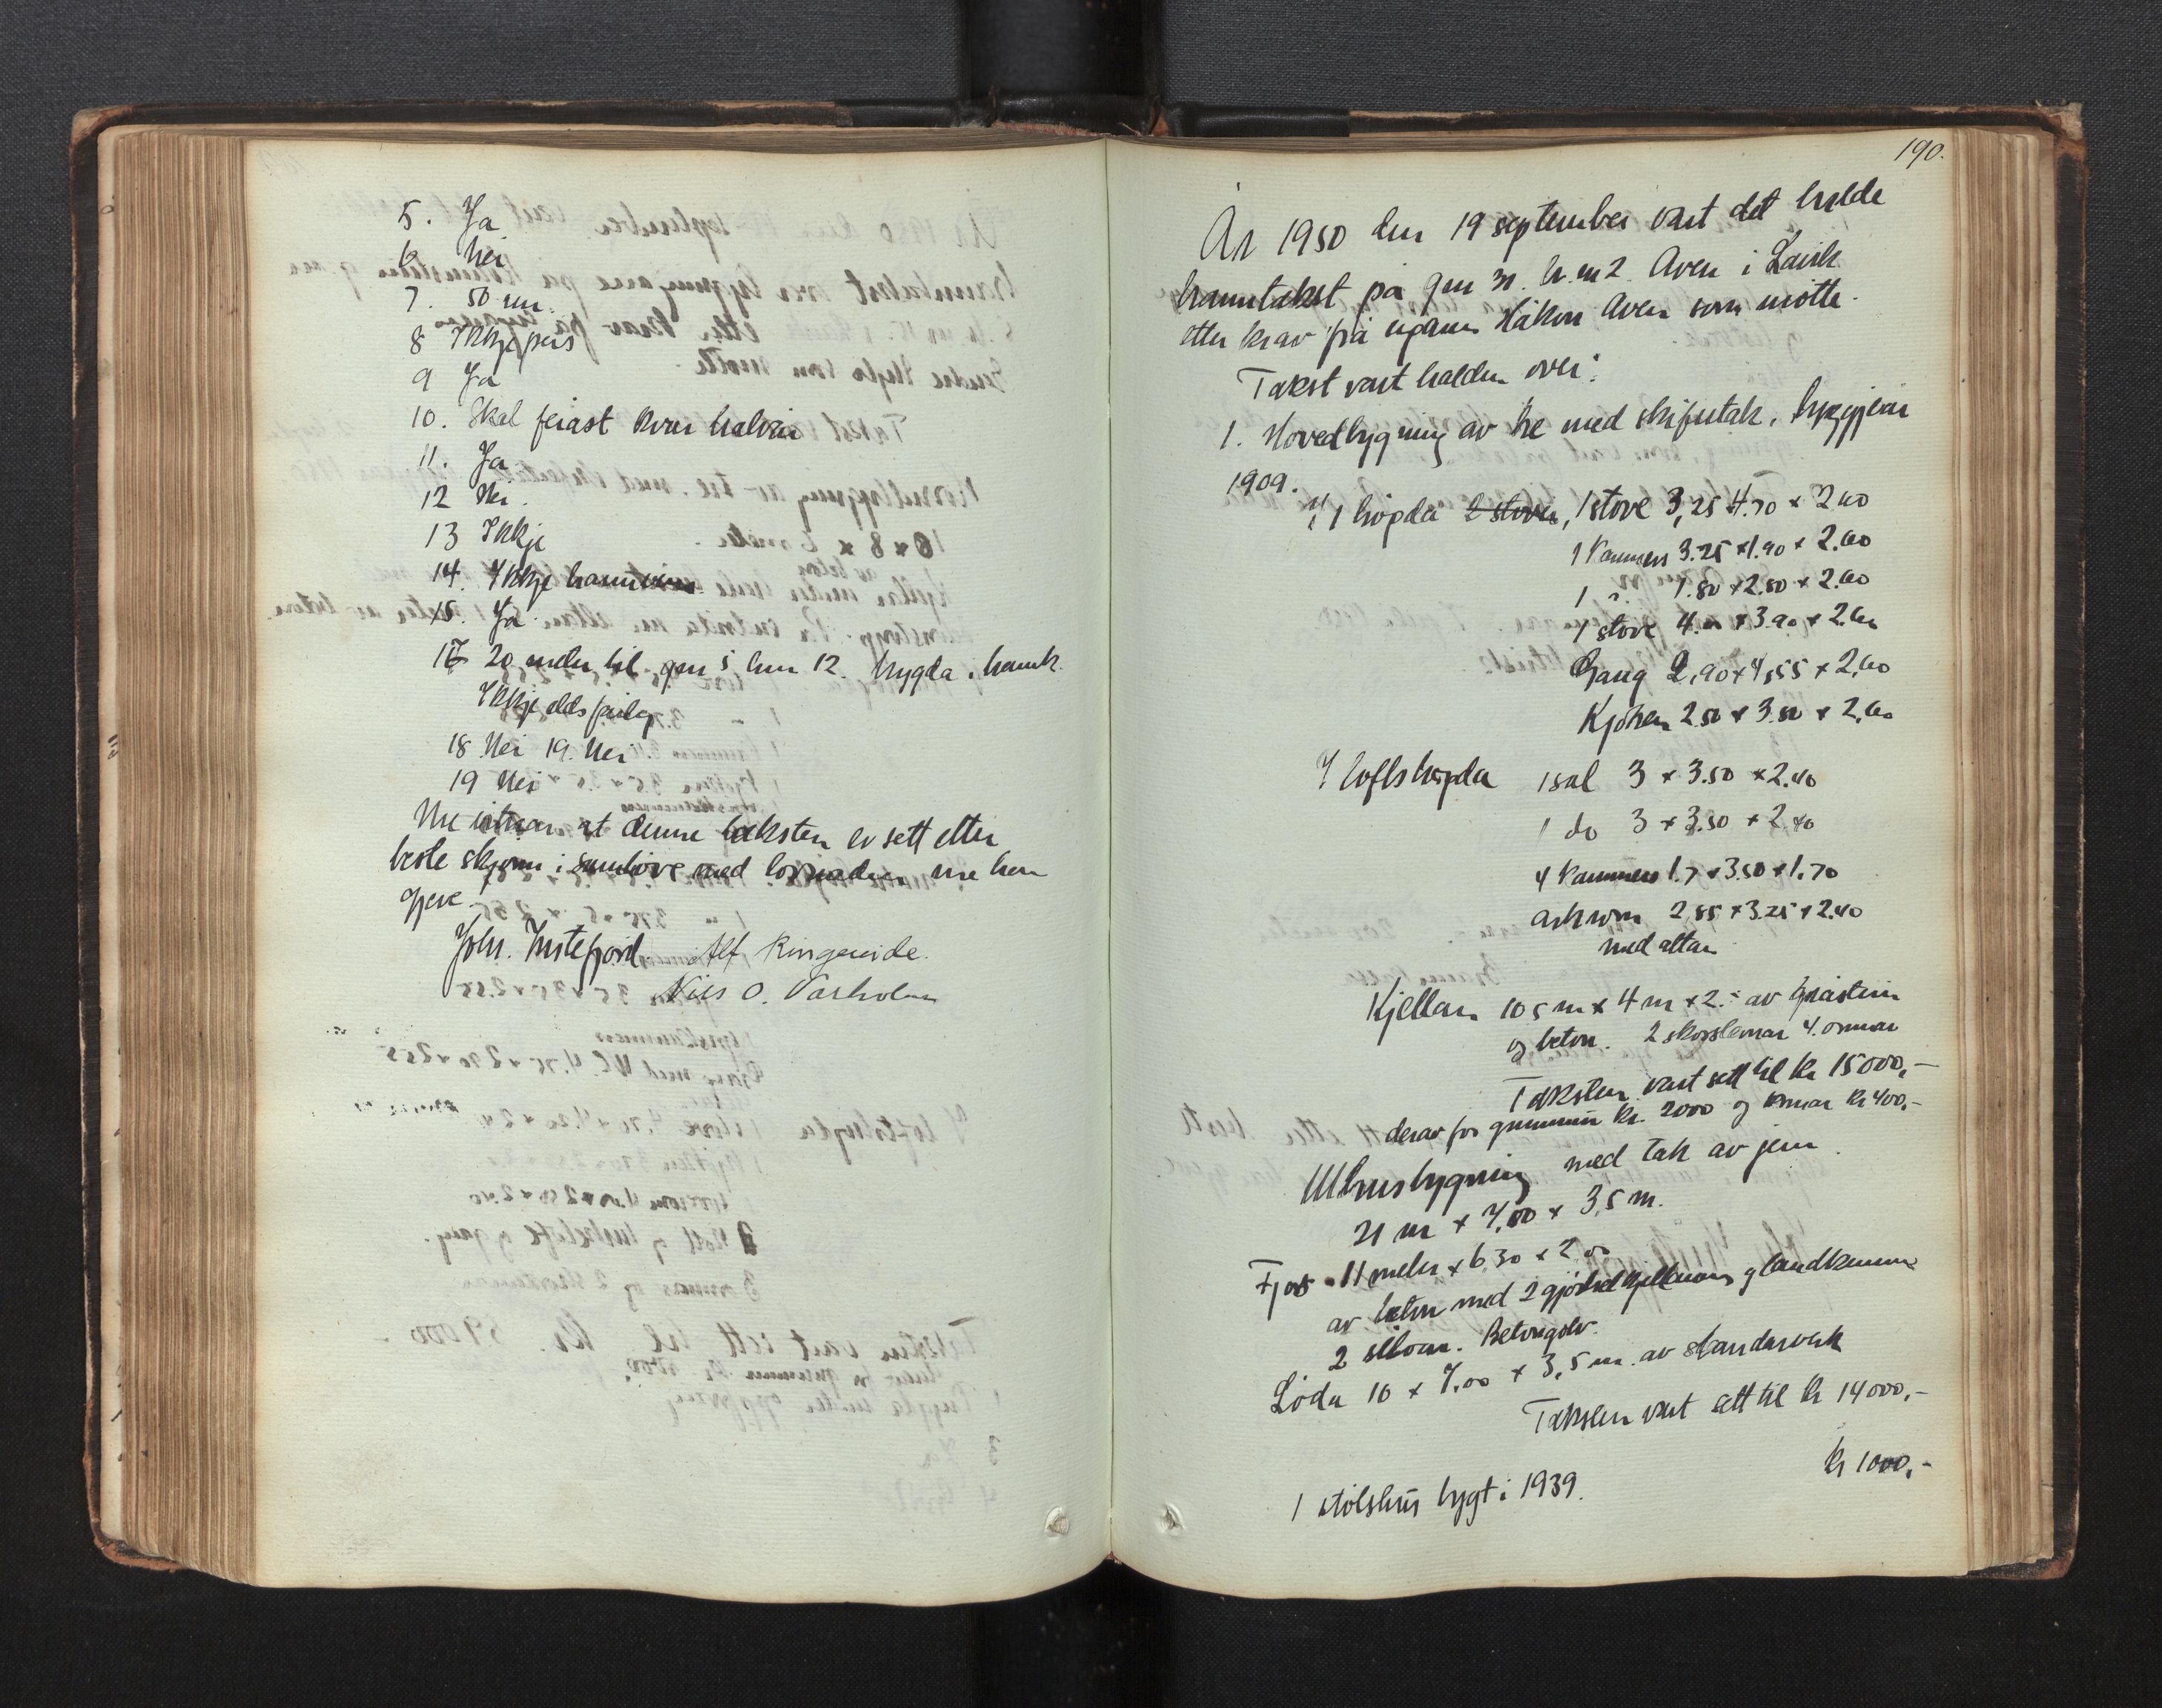 5. Ja
6 Nei
7. 50 cm.
8 Ikkje peis
9 Ja
10. Skal feiast kvar halvår
11. Ja
12 Nei.
13 Ikkje
14. Ikkje
15. Ja
17 20 meter til gnr 5 bnr 12. bygda.
Ikkje eldsfarleg
18 Nei 19. Nei
19 Nei
Me vitnar at denne taksten er sett etter
beste skjønn i samhøve med lovnaden me hev
gjeve.
Johs. Instefjord Alf Ringereide.
Nils O. Varholm
190.
År 1950 den 19 september vart det halde
branntakst på gnr 31. br. nr 2. Aven i Lavik
etter krav frå eigaren Håkon Aven som møtte.
Takst vart halden over:
1. Hovedbygning av tre med skifertak, byggjeår
1909.
I 1 høgda 2 stover, 1 stove 3,25 4.70 x 2 60
1 kammers 3.25 x 1.90 x 2.60
1 " 1.80 x 2.80 x 2.60
1 stove 4. x 3.90 x 2.60
Gang 2,90 x 4,55 x 2,60
Kjøken 2.50 x 3.50 x 2,60
I loftshøgda 1 sal 3 x 3.50 x 2.40
1 do 3 x 3.50 x 2,40
4 kammers 1.7 x 3.50 x 1.70
arkrom 2,85 x 3.25 x 2.40
med altan
Kjellar 10 5 m x 4 m x 2.- av gråstein
og betong. 2 skorsteinar 4. omnar
Taksten vart sett til kr 15000,-
derav for grunnmur kr. 2000 og omnar kr 400,-
Uthusbygning med tak av jern.
21 m x 7,00 x 3,5 m.
Fjos 11 meter x 6,30 x 2
av betong med 2 gjødselkjellarar og landkummer
2 siloar. Betonggolv.
Løda 10 x 7,00 x 3,5 m. av standarverk
Taksten vart sett til kr 14000,-
kr 1000,-
1 stølshus bygt i 1939.